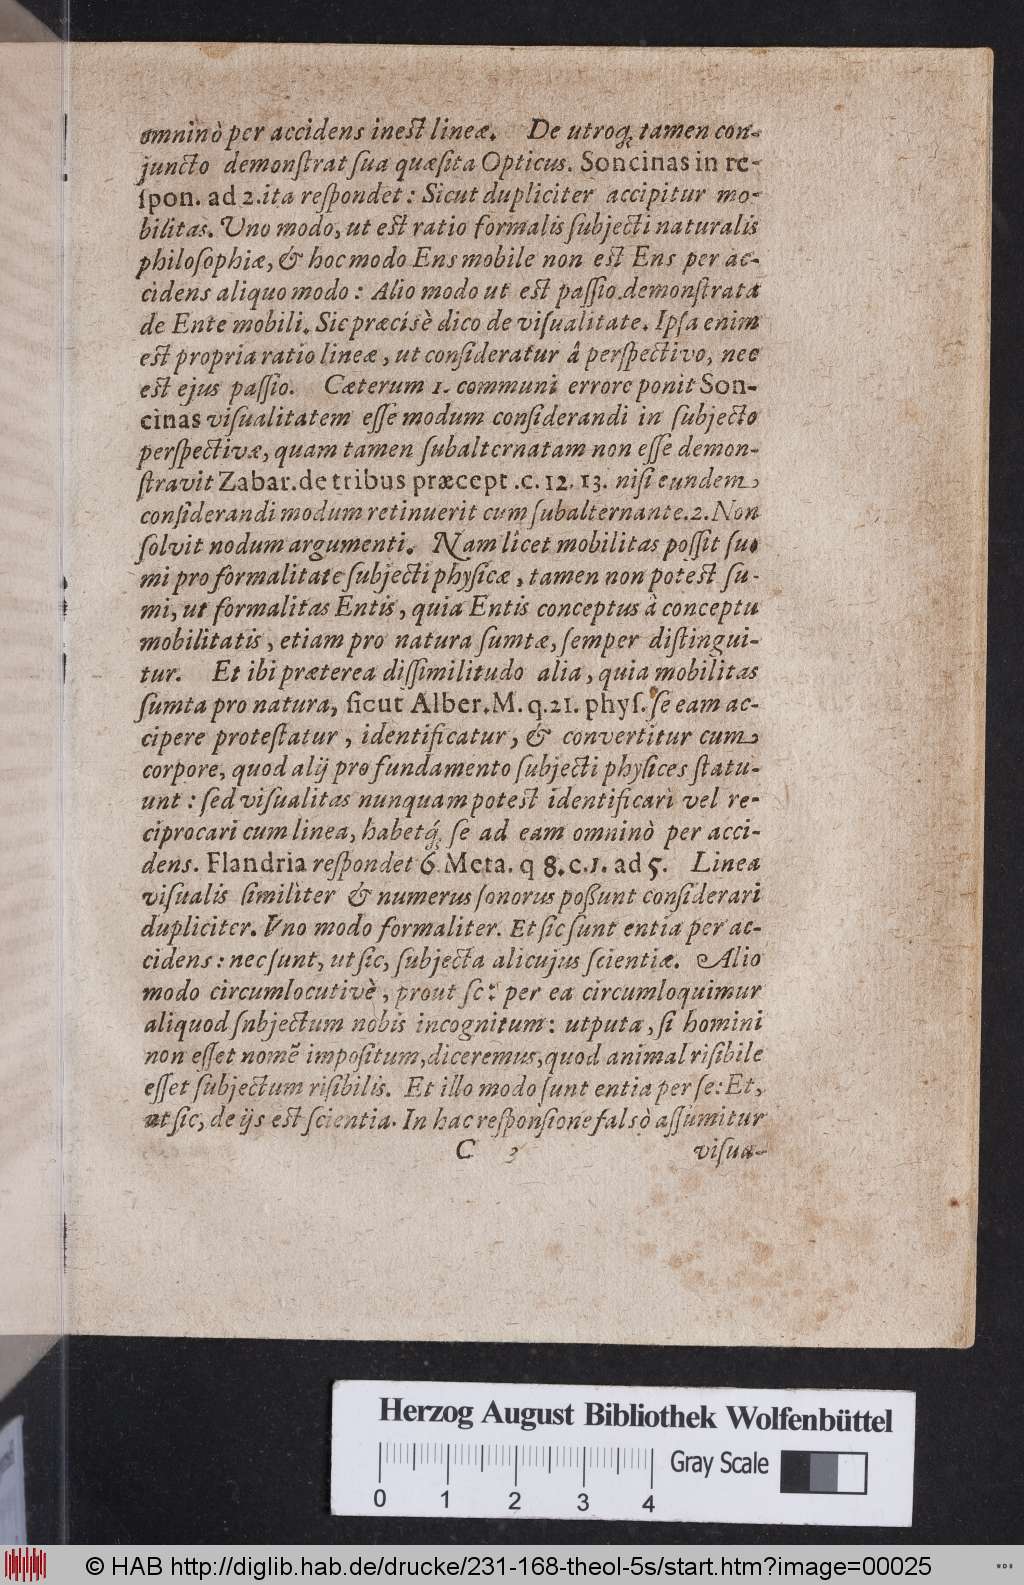 omninò per accidens inest lineæ. De utroq; tamen con-
juncto demonſtrat ſua quæſita Opticus. Soncinas in re-
ſpon. ad 2. ita reſpondet: Sicut dupliciter accipitur mo-
bilitas. Uno modo, ut est ratio formalis ſubjecti naturalis
philoſophiæ, & hoc modo Ens mobile non est Ens per ac-
cidens aliquo modo: Alio modo ut est paſſio demonſtrata
de Ente mobili. Sic præcisè dico de viſualitate. Ipſa enim
est propria ratio lineæ, ut conſideratur â perſpectivo, nec
est ejus paſſio. Cæterum 1. communi errore ponit Son-
cinas viſualitatem eſſe modum conſiderandi in ſubjecto
perſpectivæ, quam tamen ſubalternatam non eſſe demon-
ſtravit Zabar. de tribus præcept. c. 12. 13. niſi eundem
conſiderandi modum retinuerit cum ſubalternante. 2. Non
ſolvit nodum argumenti. Nam licet mobilitas poſſit ſu-
mi pro formalitate ſubjecti phyſicæ, tamen non potest ſu-
mi, ut formalitas Entis, quia Entis conceptus à conceptu
mobilitatis, etiam pro natura ſumtæ, ſemper diſtingui-
tur. Et ibi præterea diſſimilitudo alia, quia mobilitas
ſumta pro natura, ſicut Alber. M. q. 21. phyſ. ſe eam ac-
cipere proteſtatur, identificatur, & convertitur cum
corpore, quod alij pro fundamento ſubjecti phyſices ſtatu-
unt: ſed viſualitas nunquam potest identificari vel re-
ciprocari cum linea, habetq́; ſe ad eam omninò per acci-
dens. Flandria reſpondet 6. Meta. q 8. c. 1. ad 5. Linea
viſualis ſimiliter & numerus ſonorus poßunt conſiderari
dupliciter. Vno modo formaliter. Et ſic ſunt entia per ac-
cidens: nec ſunt, ut ſic, ſubjecta alicujus ſcientiæ. Alio
modo circumlocutivè, prout ſc: per ea circumloquimur
aliquod ſnbjectum nobis incognitum: utputa, ſi homini
non eſſet nomē impoſitum, diceremus, quod animal riſibile
eſſet ſubjectum riſibilis. Et illo modo ſunt entia per ſe: Et,
ut ſic, de ijs est ſcientia. In hac reſponſione falsò aſſumitur
C 3 viſua-
Herzog August Bibliothek Wolfenbüttel
Gray Scale
0 1 2 3 4
© HAB http://diglib.hab.de/drucke/231-168-theol-5s/start.htm?image=00025